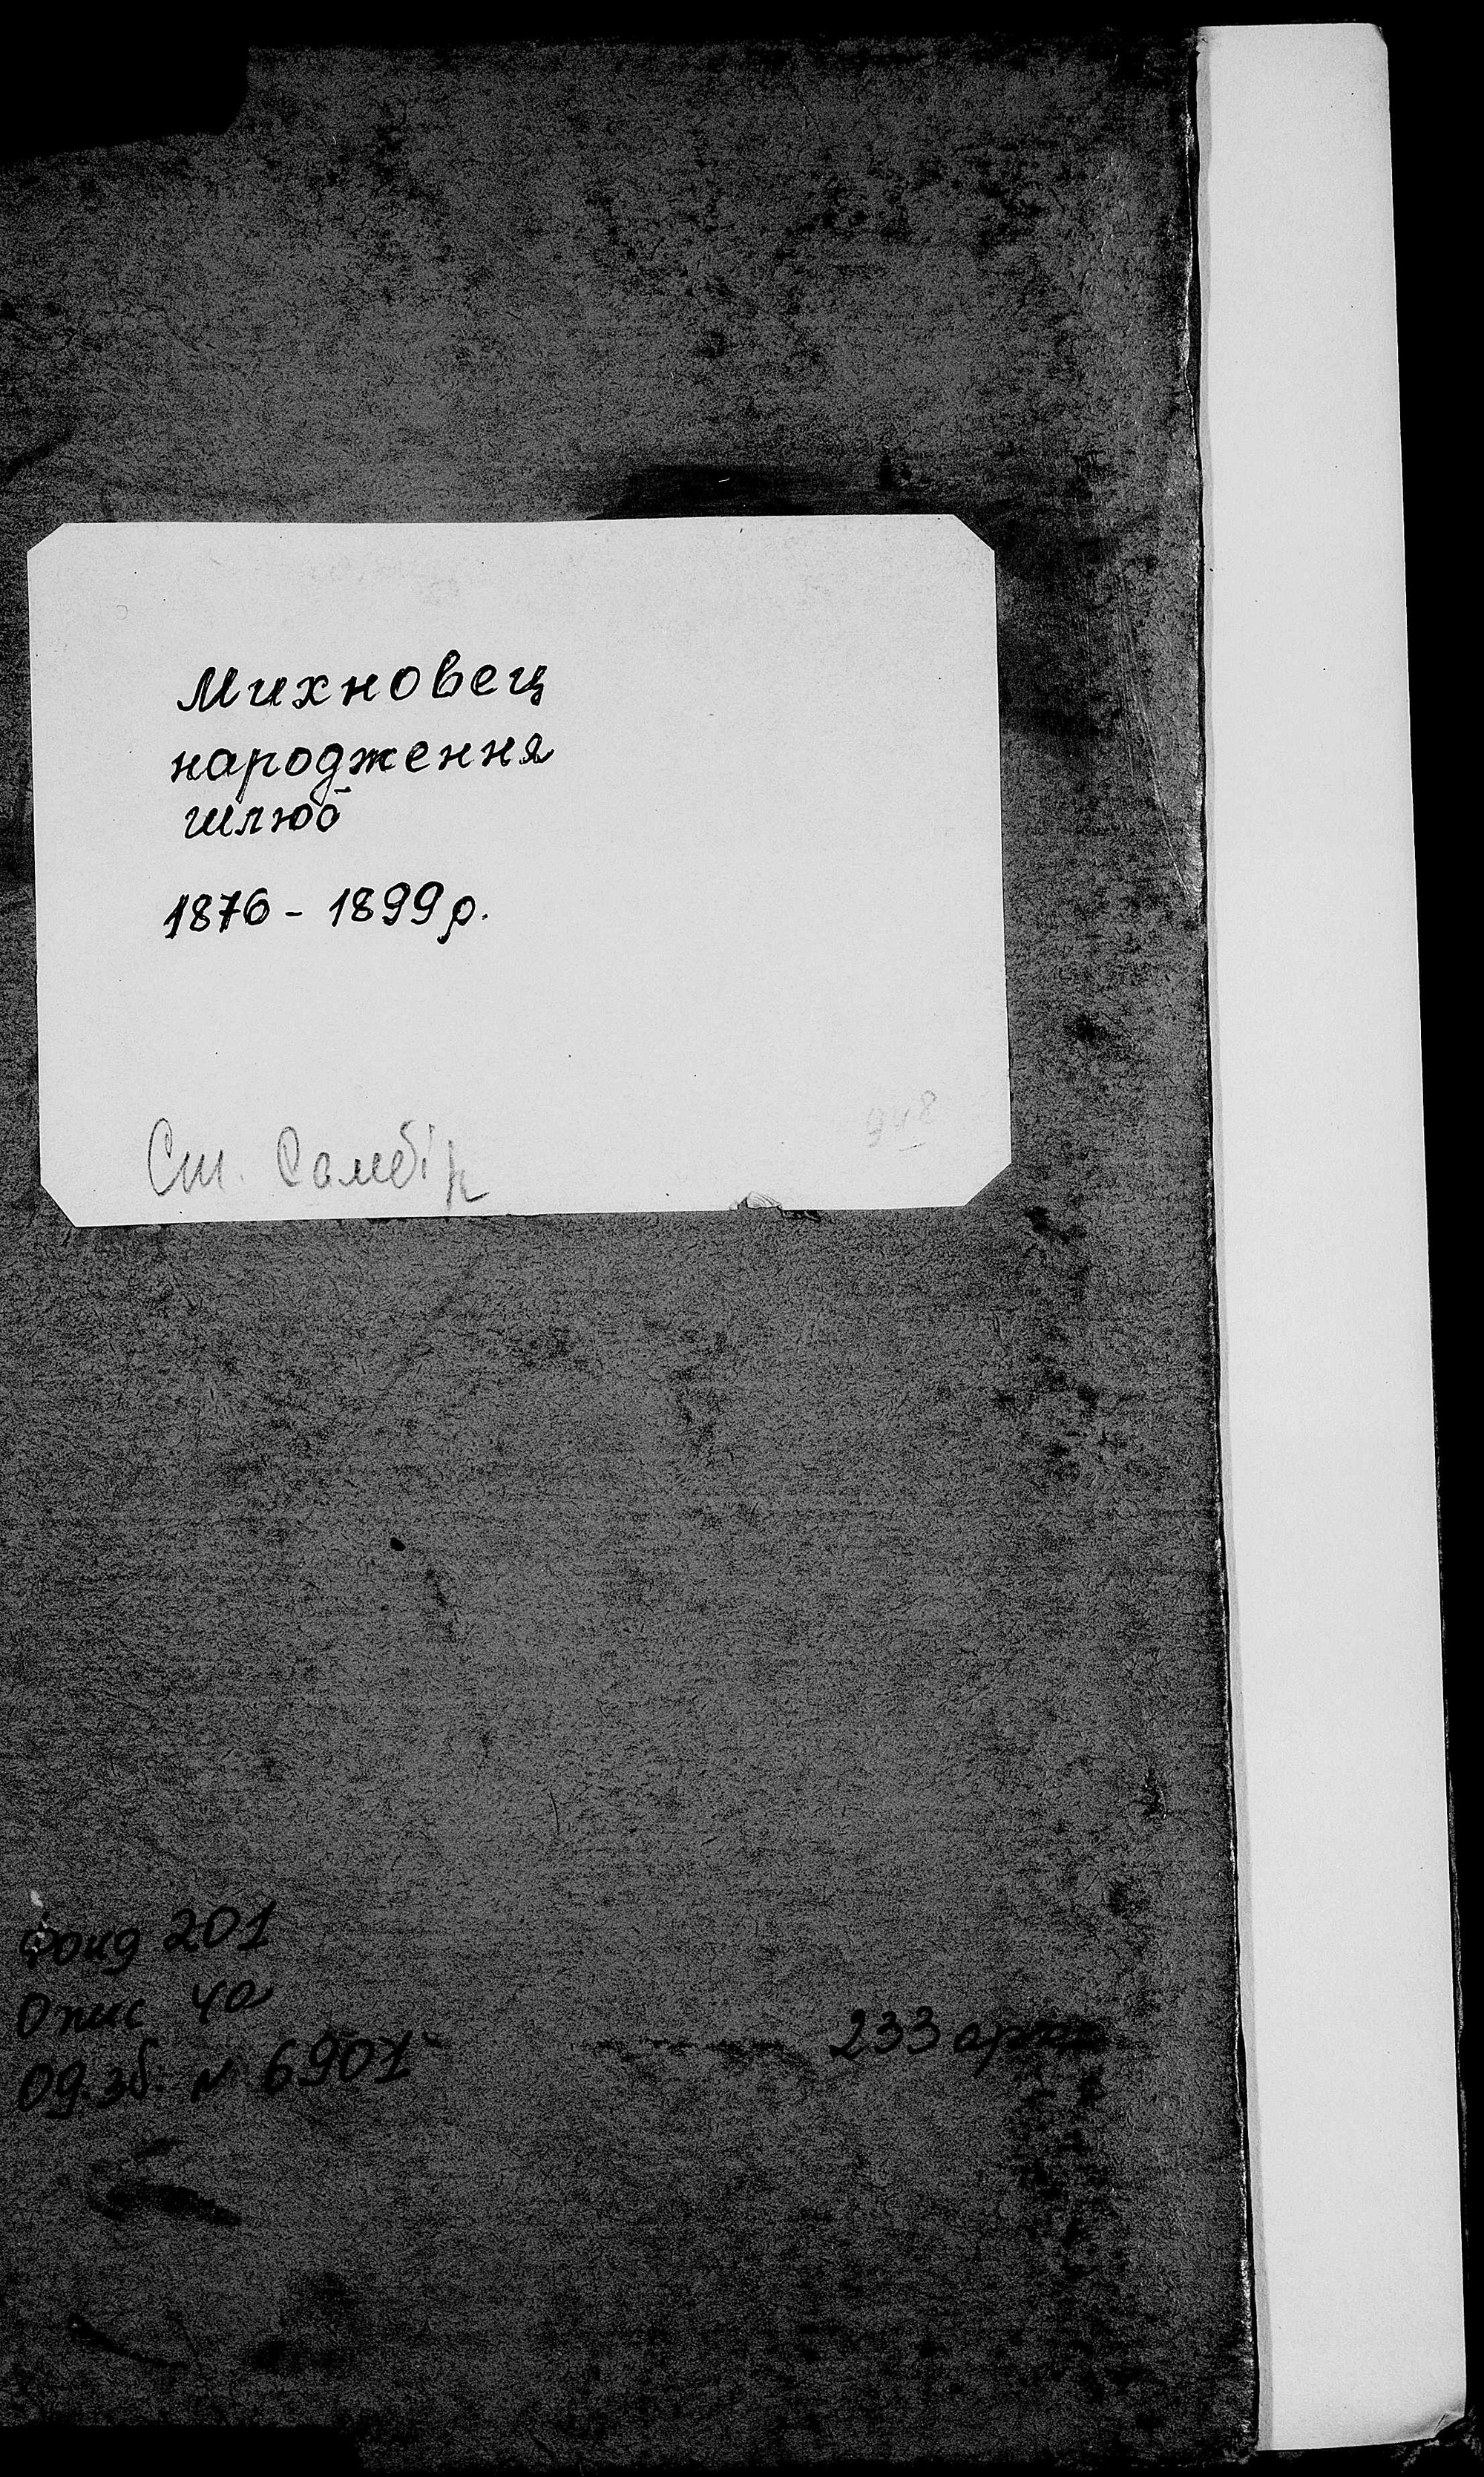 Михновец
народження
шлюб
1876 - 1899 р.
948
Ст. Самбір
Фонд 201
Опис 4а
Од. зб. № 6901
233 арк.